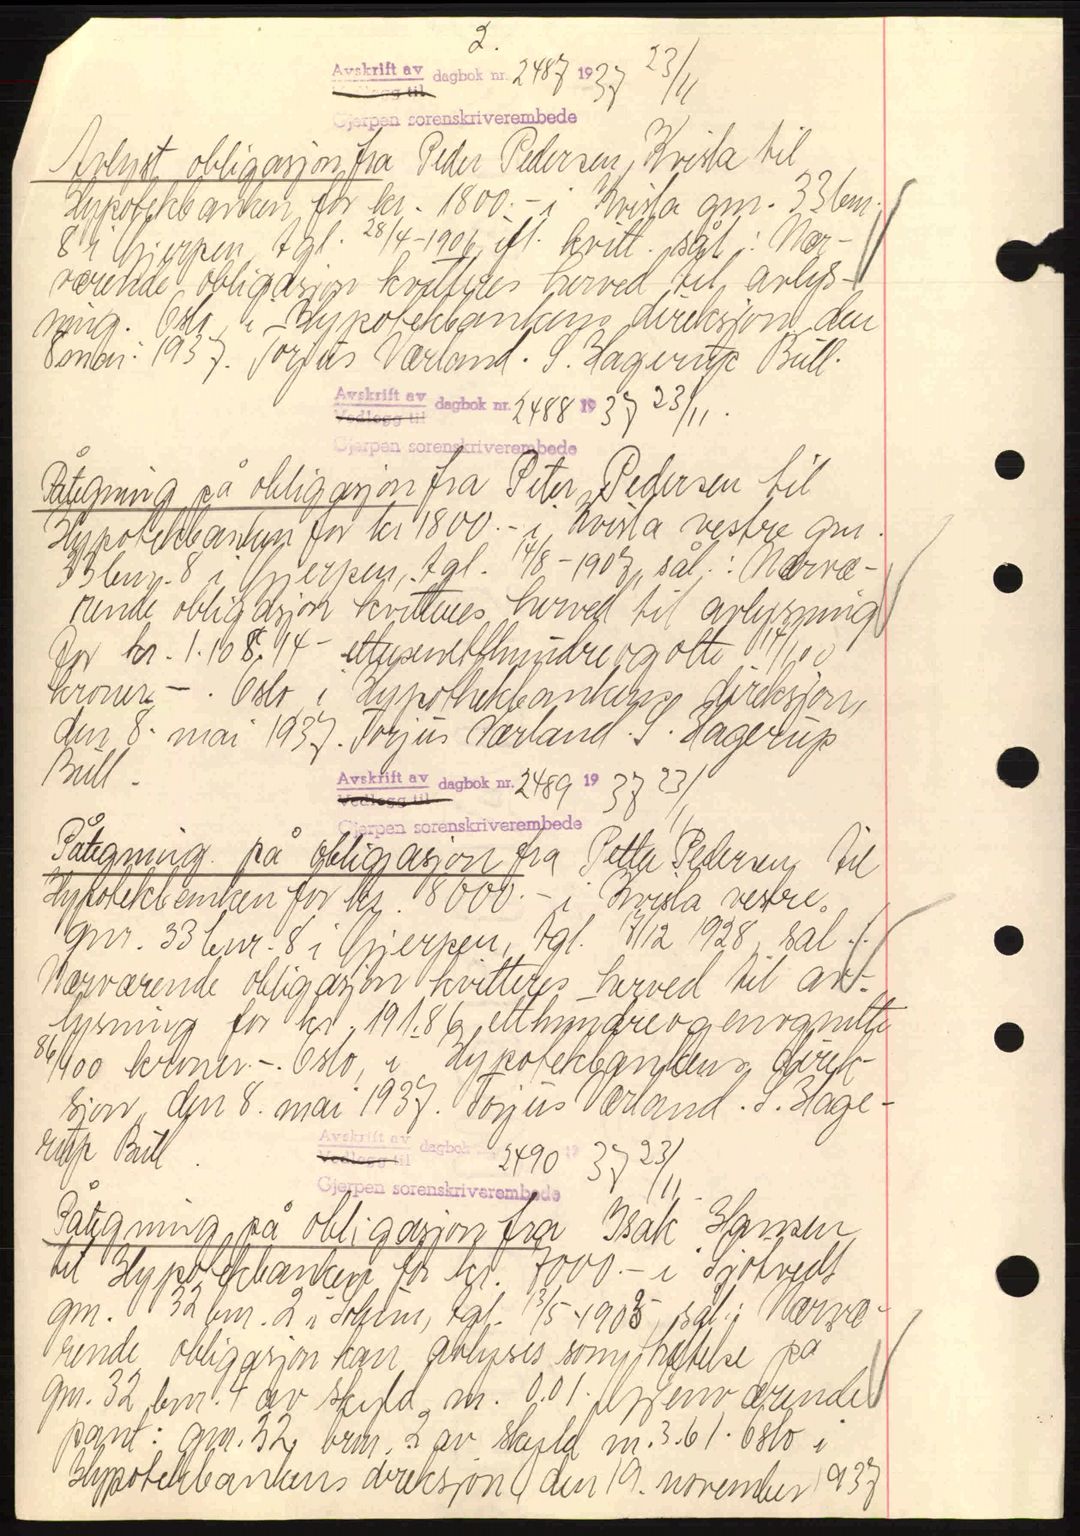 2.
Avskrift av dagbok nr. 2487 1937 23/11
Gjerpen sorenskriverembede
Avlyst obligasjon fra Peder Pedersen, Kvisla til
Hypotekbanken for kr. 1800.- i Kvisla gnr. 33 bnr.
8 i Gjerpen, tgl. 28/4-1906, ifl. kvitt. sål.: Nær-
værende obligasjon kvitteres herved til avlys-
ning. Oslo, i Hypotekbankens direksjon den
8 mai 1937. Torjus Værland. S. Hagerup Bull.
Avskrift av dagbok nr. 2488 1937 23/11.
Vedlegg til
Gjerpen sorenskriverembede
Påtegning på obligasjon fra Peter Pedersen til
Hypotekbanken for kr 1800.- i Kvisla vestre gnr.
33 bnr. 8 i Gjerpen, tgl. 14/8-1907, sål.: Nærvæ-
rende obligasjon kvitteres herved til avlysning
for kr. 1.108,14- ettusenetthundreogotte 14/100
kroner -. Oslo, i Hypothekbankens direksjon,
den 8. mai 1937. Torjus Værland. S. Hagerup
Bull.
Avskrift av dagbok nr. 2489 1937 23/11
Vedlegg til
Gjerpen sorenskriverembede
Påtegning på obligasjon fra Petta Pedersen til
Hypotekbanken for kr. 8000.- i Kvisla vestre,
gnr. 33 bnr. 8 i Gjerpen, tgl. 7/12 1928, sål.:
Nærværende obligasjon kvitteres herved til av-
lysning for kr. 191.86, etthundreogenognitti
86/100 kroner.-. Oslo, i Hypotekbankens direk-
sjon, den 8. mai 1937. Torjus Værland. S. Hage-
rup Bull.
Avskrift av dagbok nr. 2490 1937 23/11
Vedlegg til
Gjerpen sorenskriverembede
Påtegning på obligasjon fra Isak Hansen
til Hypotekbanken for kr. 7000.- i Sjøtvedt
gnr. 32 bnr. 2 i Solum, tgl. 13/5-1905, sål.: Nærvæ-
rende obligasjon kan avlyses som heftelse på
gnr. 32 bnr. 4 av skyld m. 0.01. Gjenværende
pant: gnr. 32, brnr. 2 av skyld m. 3.61. Oslo i
Hypotekbankens direksjon, den 19. november 1937